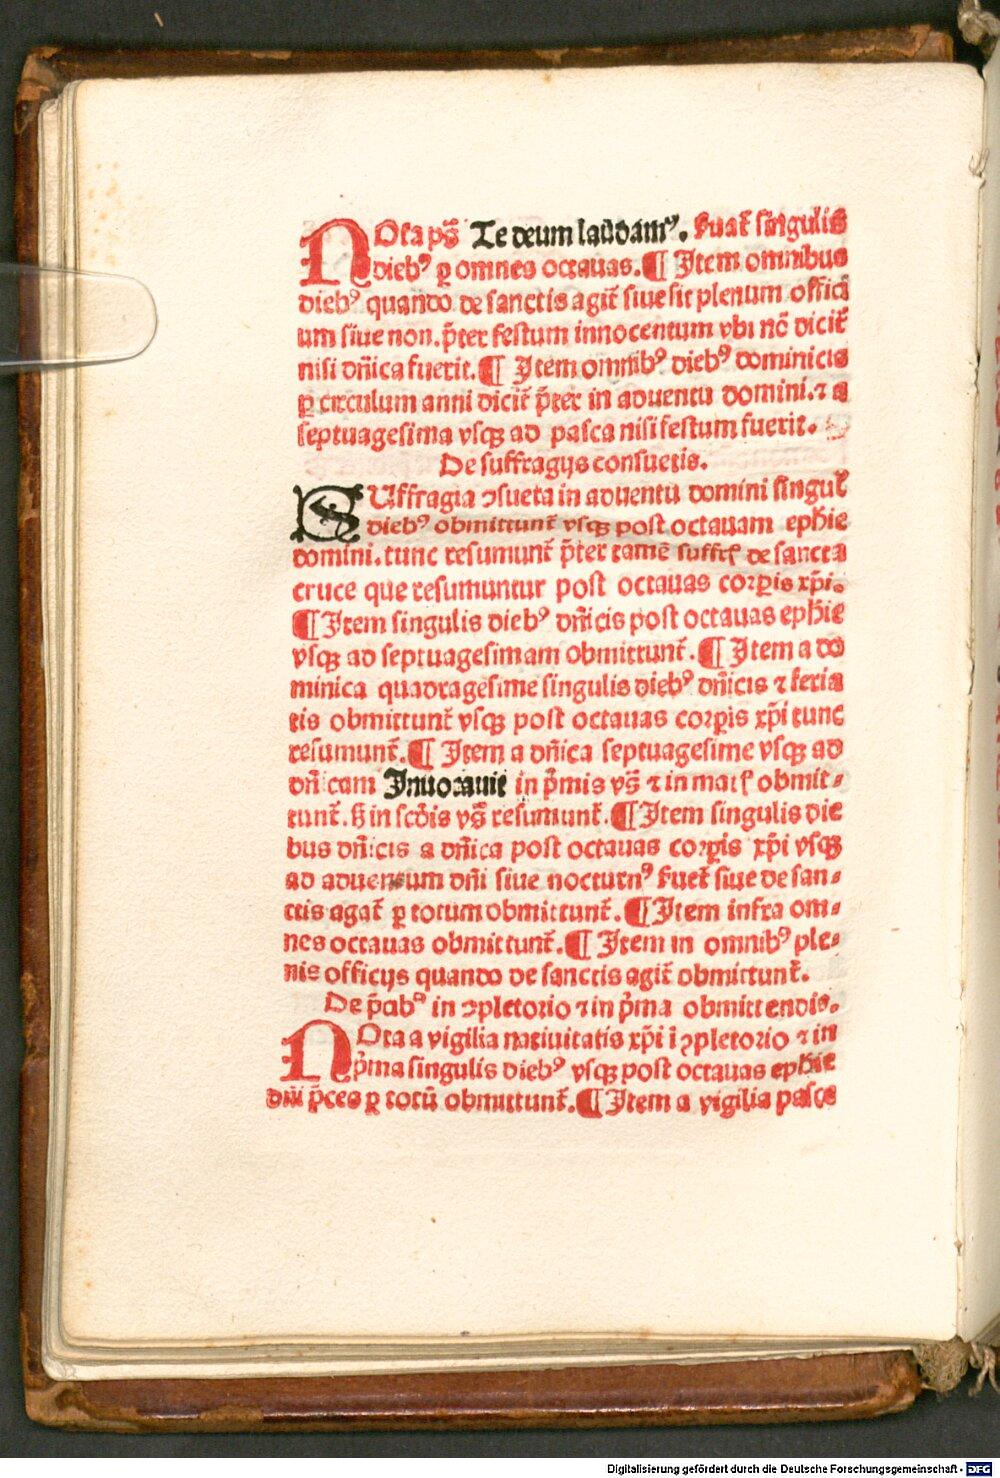 NOta ps̄ Te deum laudamꝰ. Fuat̄ singulis
diebꝰ ꝑ omnes octauas. ¶ Item omnibus
diebꝰ quando de sanctis agit̄ siue sit plenum offici
um siue non. p̄ter festum innocentum vbi nō dicit̄
nisi dn̄ica fuerit. ¶ Item omnibꝰ diebꝰ dominicis
ꝑ circulum anni dicit̄ p̄ter in aduentu domini. ⁊ a
septuagesima vsqꝫ ad pasca nisi festum fuerit.
De suffragijs consuetis.
SUffragia ꝯsueta in aduentu domini singul̄
diebꝰ obmittunt̄ vsqꝫ post octauam ephie
domini. tunc resumunt̄ p̄ter tamē suffrꝭ de sancta
cruce que resumuntur post octauas corꝑis xp̄i.
¶ Item singulis diebꝰ dn̄icis post octauas ephie
vsqꝫ ad septuagesimam obmittunt̄. ¶ Item a do
minica quadragesime singulis diebꝰ dn̄icis ⁊ feria
tis obmittunt̄ vsqꝫ post octauas corꝑis xp̄i tunc
resumunt̄. ¶ Item a dn̄ica septuagesime vsqꝫ ad
dn̄icam Inuocauit in p̄mis vs̄ ⁊ in matꝭ obmit-
tunt̄. sꝫ in scd̄is vs̄ resumunt̄. ¶ Item singulis die
bus dn̄icis a dn̄ica post octauas corꝑis xp̄i vsqꝫ
ad aduentum dn̄i siue nocturnꝰ fuet̄ siue de san-
ctis agat̄ ꝑ totum obmittunt̄. ¶ Item infra om-
nes octauas obmittunt̄. ¶ Item in omnibꝰ ple-
nis officijs quando de sanctis agit̄ obmittunt̄.
De p̄cibꝰ in ꝯpletorio ⁊ in p̄ma obmittendis.
NOta a vigilia natiuitatis xp̄i ī ꝯpletorio ⁊ in
p̄ma singulis diebꝰ vsqꝫ post octauas ephie
dn̄i p̄ces ꝑ totū obmittunt̄. ¶ Item a vigilia pasce
Digitalisierung gefördert durch die Deutsche Forschungsgemeinschaft - DFG